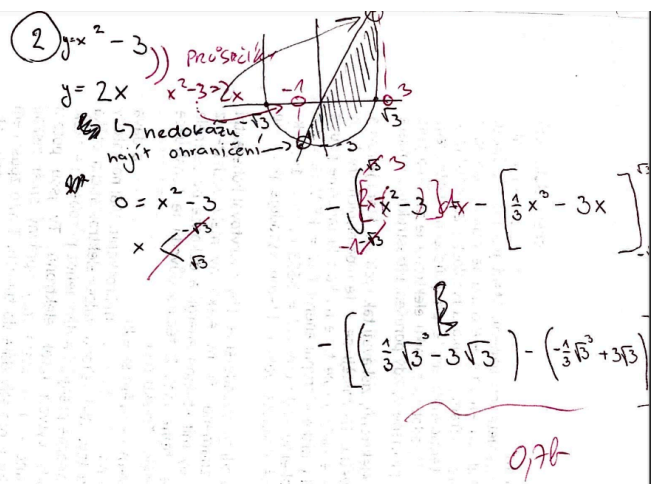 2 y=x² - 3
)) PRŮSEČÍK
y = 2x x²-3=2x -1 3
-√3 √3
↳ nedokážu
najít ohraničení → -3
0 = x² - 3
x < -√3
√3
- ∫ √3 3 -1 -√3 [2x - x² - 3] dx - [⅓x³ - 3x] √3
- [(⅓√3³ - 3√3) - (-⅓√3³ + 3√3)]
0,7b